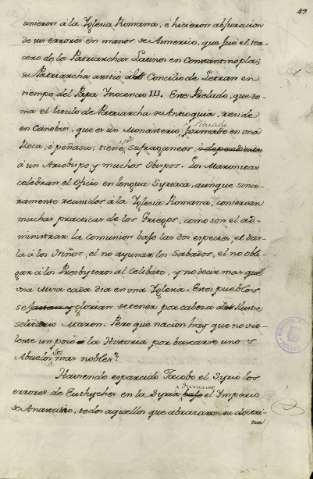 49
unieron à la Iglesia Romana, e hicieron abjuracion
de sus errores en manos de Aimerico, que fué el ter-
cero de los Patriarchas Latinos en Constantinopla;
su Patriarcha asistió al Concilio de Letran en
tiempo del Papa Inocencio III. Este Prelado, que to-
ma el titulo de Patriarcha de Antioquia, reside
en Canobin, que es un Monasterio, situado en una
Roca, ò peñasco; tiene sufraganeos
à un Arzobispo y muchos Obispos. Los Maronitas
celebran el Oficio en lengua Syriaca, aunque since-
ramente reunidos à la Iglesia Romana, conservan
muchas practicas de los Griegos, como son el ad-
ministrar la comunion bajo las dos especies, el dar-
la à los Niños, el no ayunar los Sabados, el no obli-
gar à los Presbyteros al Celibato, y no decir mas que
una Misa cada dia en una Iglesia. Estos pueblos
se glorian de tener por cabeza
Maron. Pero que nacion hay que no vio-
lente un poco la Historia por buscarse unos
Abuelos mas nobles?
Haviendo esparcido Jacobo el Syrio los
errores de Eutyches en la Syria durante el Imperio
de Anastasio, todos aquellos que abrazaron su doctri-
na